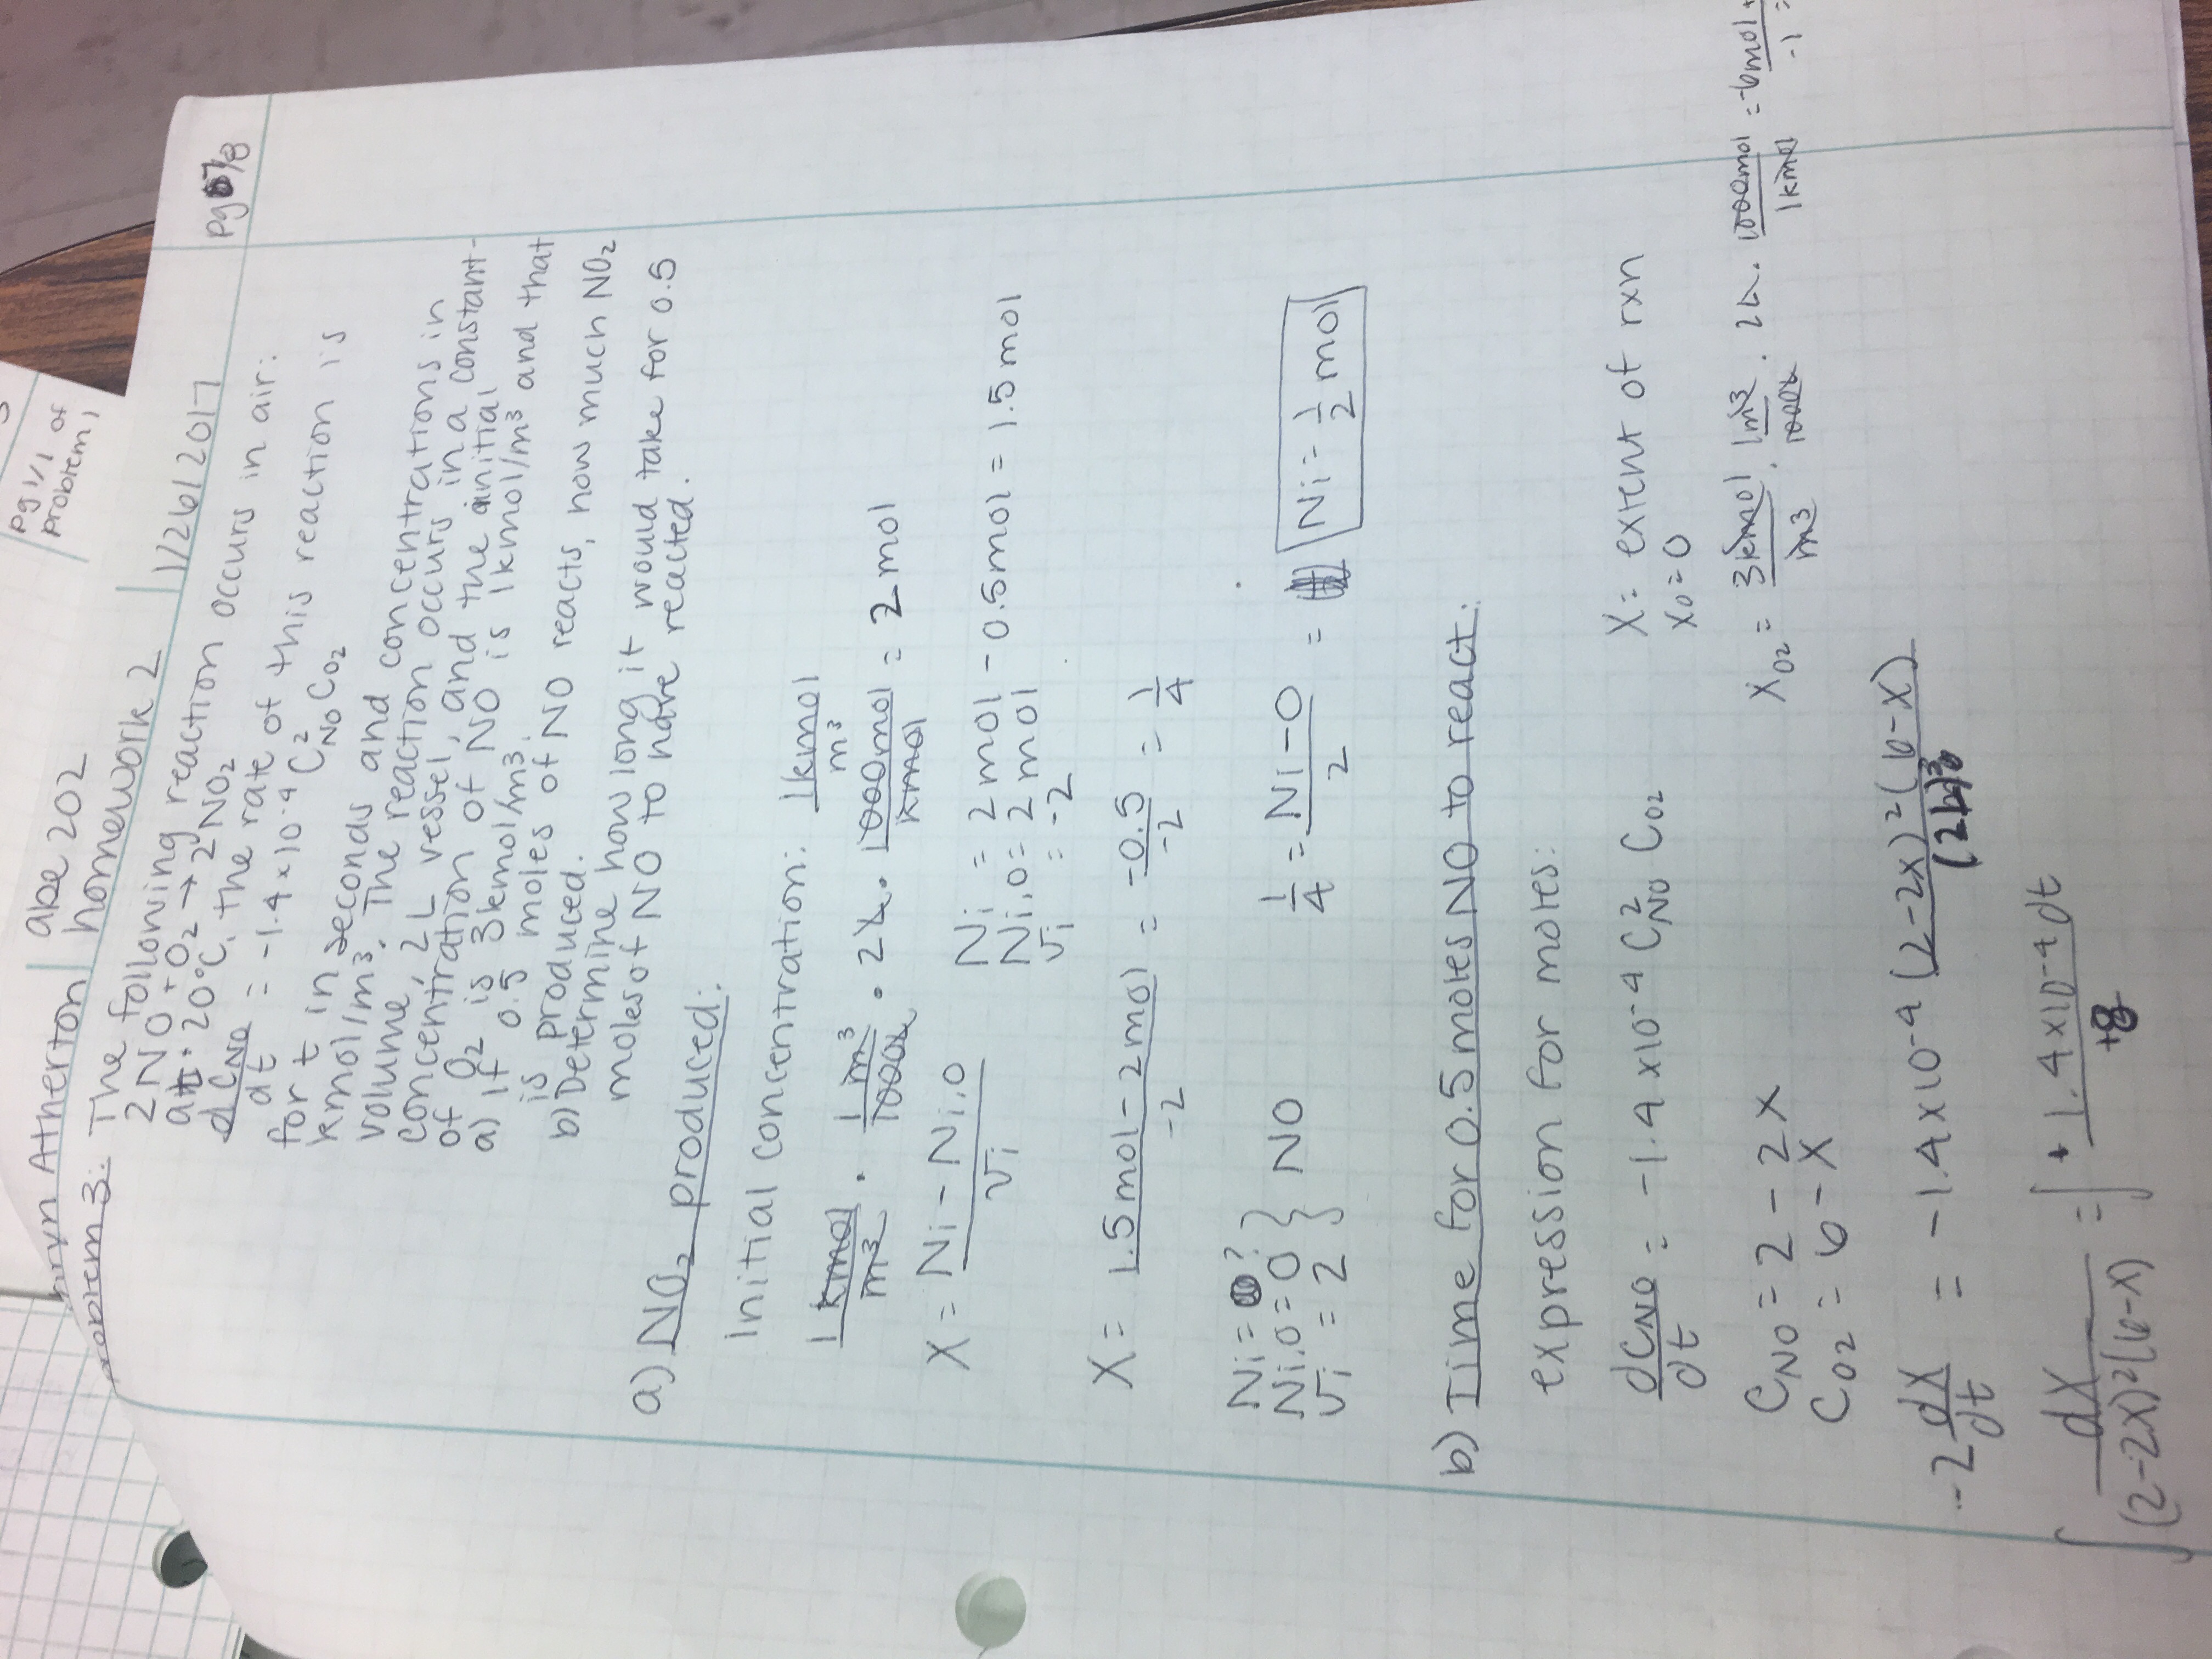 Atherton
abe 202
homework 2
1/26/2017
pg 7/8
pg 1/1 of
problem 1
problem 3: The following reaction occurs in air:
2NO + O₂ → 2NO₂
at 20°C, the rate of this reaction is
dC_NO/dt = -1.4 × 10⁻⁴ C²_NO C_O₂
for t in seconds and concentrations in
kmol/m³. The reaction occurs in a constant-
volume, 2L vessel, and the initial
concentration of NO is 1kmol/m³ and that
of O₂ is 3kmol/m³.
a) If 0.5 moles of NO reacts, how much NO₂
is produced.
b) Determine how long it would take for 0.5
moles of NO to have reacted.
a) NO₂ produced:
Initial concentration: 1kmol/m³
1 kmol/m³ · 1 m³/1000L · 2L · 1000mol/kmol = 2 mol
X = Ni - Ni,0/νi
Ni = 2mol - 0.5mol = 1.5 mol
Ni,0 = 2 mol
νi = -2
X = 1.5mol - 2mol/-2 = -0.5/-2 = 1/4
Ni = ?
Ni,0 = 0 } NO
νi = 2
1/4 = Ni - 0/2 = Ni = 1/2 mol
b) Time for 0.5 moles NO to react:
expression for moles:
dC_NO/dt = -1.4 × 10⁻⁴ C²_NO C_O₂
X = extent of rxn
X₀ = 0
C_NO = 2 - 2X
C_O₂ = 6 - X
X_O₂ = 3kmol/m³ · 1m³/1000L · 2L · 1000mol/1kmol = -6mol+/-1 =
-2 dX/dt = -1.4 × 10⁻⁴ (2-2X)²(6-X)/(2L)³
∫ dX/(2-2X)²(6-X) = ∫ +1.4 × 10⁻⁴ dt/+8